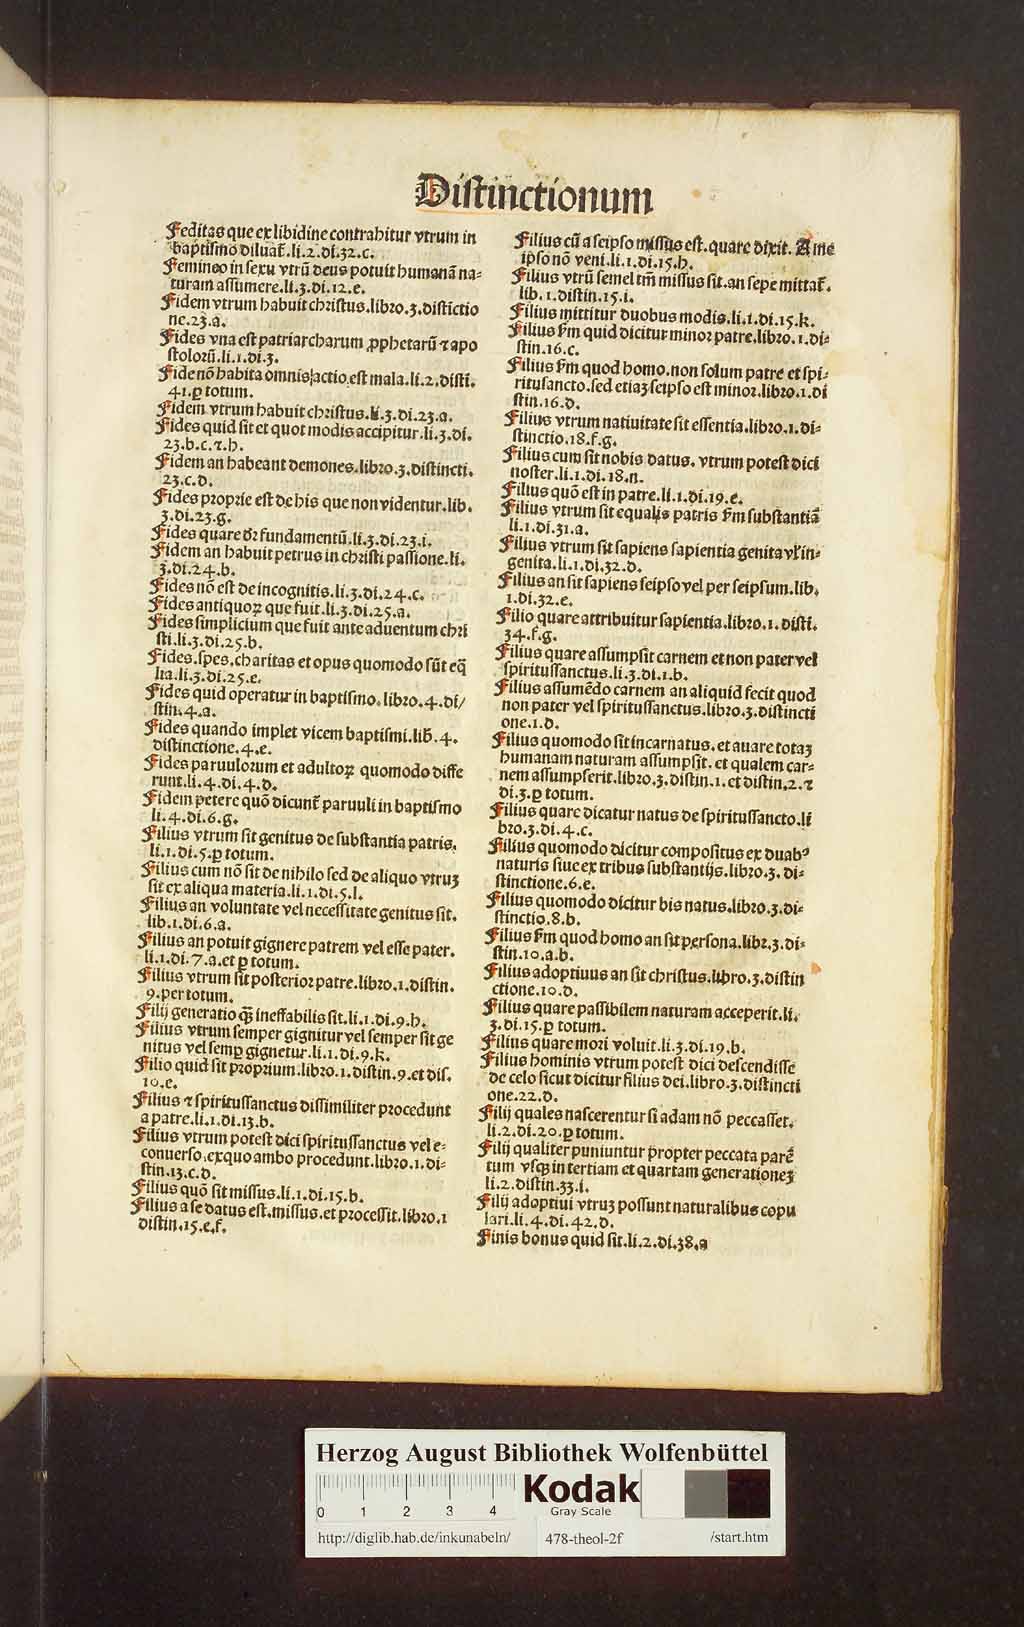 Distinctionum
Feditas que ex libidine contrahitur vtrum in
baptismo diluat̃.li.2.di.32.c.
Femineo in sexu vtrũ deus potuit humanã na⸗
turam assumere.li.3.di.12.e.
Fidem vtrum habuit christus.libro.3.distĩctio
ne.23.a.
Fides vna est patriarcharum ꝓphetarũ ⁊ apo
stolorũ.li.1.di.3.
Fide nõ habita omnis actio est mala.li.2.disti.
41.ꝑ totum.
Fidem vtrum habuit christus.li.3.di.23.a.
Fides quid sit et quot modis accipitur.li.3.di.
23.b.c.⁊.h.
Fidem an habeant demones.libro.3.distincti.
23.c.d.
Fides proprie est de his que non videntur.lib.
3.di.23.g.
Fides quare dr̃ fundamentũ.li.3.di.23.i.
Fidem an habuit petrus in christi passione.li.
3.di.24.b.
Fides nõ est de incognitis.li.3.di.24.c.
Fides antiquoꝝ que fuit.li.3.di.25.a.
Fides simplicium que fuit ante aduentum chri
sti.li.3.di.25.b.
Fides.spes.charitas et opus quomodo sũt eq̃
lia.li.3.di.25.e.
Fides quid operatur in baptismo.libro.4.di/
stin.4.a.
Fides quando implet vicem baptismi.lib̃.4.
distinctione.4.e.
Fides paruulorum et adultoꝝ quomodo diffe
runt.li.4.di.4.d.
Fidem petere quõ dicunt̃ paruuli in baptismo
li.4.di.6.g.
Filius vtrum sit genitus de substantia patris.
li.1.di.5.ꝑ totum.
Filius cum nõ sit de nihilo sed de aliquo vtruꝫ
sit ex aliqua materia.li.1.di.5.l.
Filius an voluntate vel necessitate genitus sit.
lib.1.di.6.a.
Filius an potuit gignere patrem vel esse pater.
li.1.di.7.a.et ꝑ totum.
Filius vtrum sit posterior patre.libro.1.distin.
9.per totum.
Filij generatio q̃ȝ ineffabilis sit.li.1.di.9.h.
Filius vtrum semper gignitur vel semper sit ge
nitus vel semꝑ gignetur.li.1.di.9.k.
Filio quid sit proprium.libro.1.distin.9.et dis.
10.e.
Filius ⁊ spiritussanctus dissimiliter procedunt
a patre.li.1.di.13.b.
Filius vtrum potest dici spiritussanctus vel e⸗
conuerso.exquo ambo procedunt.libro.1.di⸗
stin.13.c.d.
Filius quõ sit missus.li.1.di.15.b.
Filius a se datus est.missus.et processit.libro.1
distin.15.e.f.
Filius cũ a seipso missus est.quare dixit. A me
ipso nõ veni.li.1.di.15.h.
Filius vtrũ semel tm̃ missus sit.an sepe mittat̃.
lib.1.distin.15.i.
Filius mittitur duobus modis.li.1.di.15.k.
Filius ẜm quid dicitur minor patre.libro.1.di⸗
stin.16.c.
Filius ẜm quod homo.non solum patre et spi⸗
ritusancto.sed etiaꝫ seipso est minor.libro.1.di
stin.16.d.
Filius vtrum natiuitate sit essentia.libro.1.di⸗
stinctio.18.f.g.
Filius cum sit nobis datus.vtrum potest dici
noster.li.1.di.18.n.
Filius quõ est in patre.li.1.di.19.e.
Filius vtrum sit equalis patris ẜm substantiã
li.1.di.31.a.
Filius vtrum sit sapiens sapientia genita vl̃ in⸗
genita.li.1.di.32.d.
Filius an sit sapiens seipso vel per seipsum.lib.
1.di.32.e.
Filio quare attribuitur sapientia.libro.1.disti.
34.f.g.
Filius quare assumpsit carnem et non pater vel
spiritussanctus.li.3.di.1.b.
Filius assumẽdo carnem an aliquid fecit quod
non pater vel spiritussanctus.libro.3.distincti
one.1.d.
Filius quomodo sit incarnatus.et an are totaꝫ
humanam naturam assumpsit.et qualem car⸗
nem assumpserit.libro.3.distin.1.et distin.2.⁊
di.3.ꝑ totum.
Filius quare dicatur natus de spiritussancto.li
bro.3.di.4.c.
Filius quomodo dicitur compositus ex duabꝰ
naturis siue ex tribus substantijs.libro.3.di⸗
stinctione.6.e.
Filius quomodo dicitur bis natus.libro.3.di⸗
stinctio.8.b.
Filius ẜm quod homo an sit persona.libr.3.di⸗
stin.10.a.b.
Filius adoptiuus an sit christus.libro.3.distin
ctione.10.d.
Filius quare passibilem naturam acceperit.li.
3.di.15.ꝑ totum.
Filius quare mori voluit.li.3.di.19.b.
Filius hominis vtrum potest dici descendisse
de celo sicut dicitur filius dei.libro.3.distincti
one.22.d.
Filij quales nascerentur si adam nõ peccasset.
li.2.di.20.ꝑ totum.
Filij qualiter puniuntur propter peccata parẽ
tum vsqꝫ in tertiam et quartam generationeꝫ
li.2.distin.33.i.
Filij adoptiui vtruꝫ possunt naturalibus copu
lari.li.4.di.42.d.
Finis bonus quid sit.li.2.di.38.a
Herzog August Bibliothek Wolfenbüttel
0 1 2 3 4
Kodak
Gray Scale
http://diglib.hab.de/inkunabeln/ 478-theol-2f /start.htm